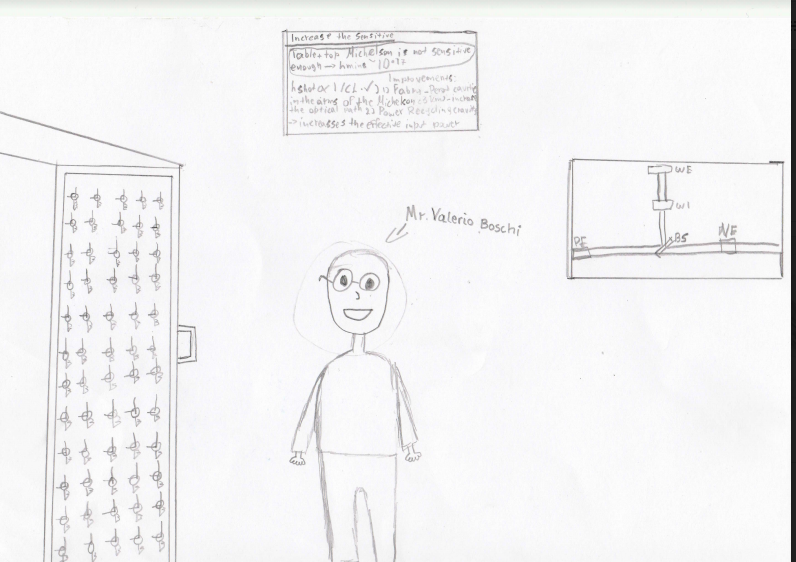 Increase the Sensitive
Tabletop Michelson is not sensitive
enough → hmin ~ 10-17
Improvements:
hshot α 1/(L·√ 1) Fabry-Perot cavities
in the arms of the Michelson
the optical path 2) Power Recycling cavity
→ increasses the effective input power
Mr. Valerio Boschi
WE
WI
BS
PE